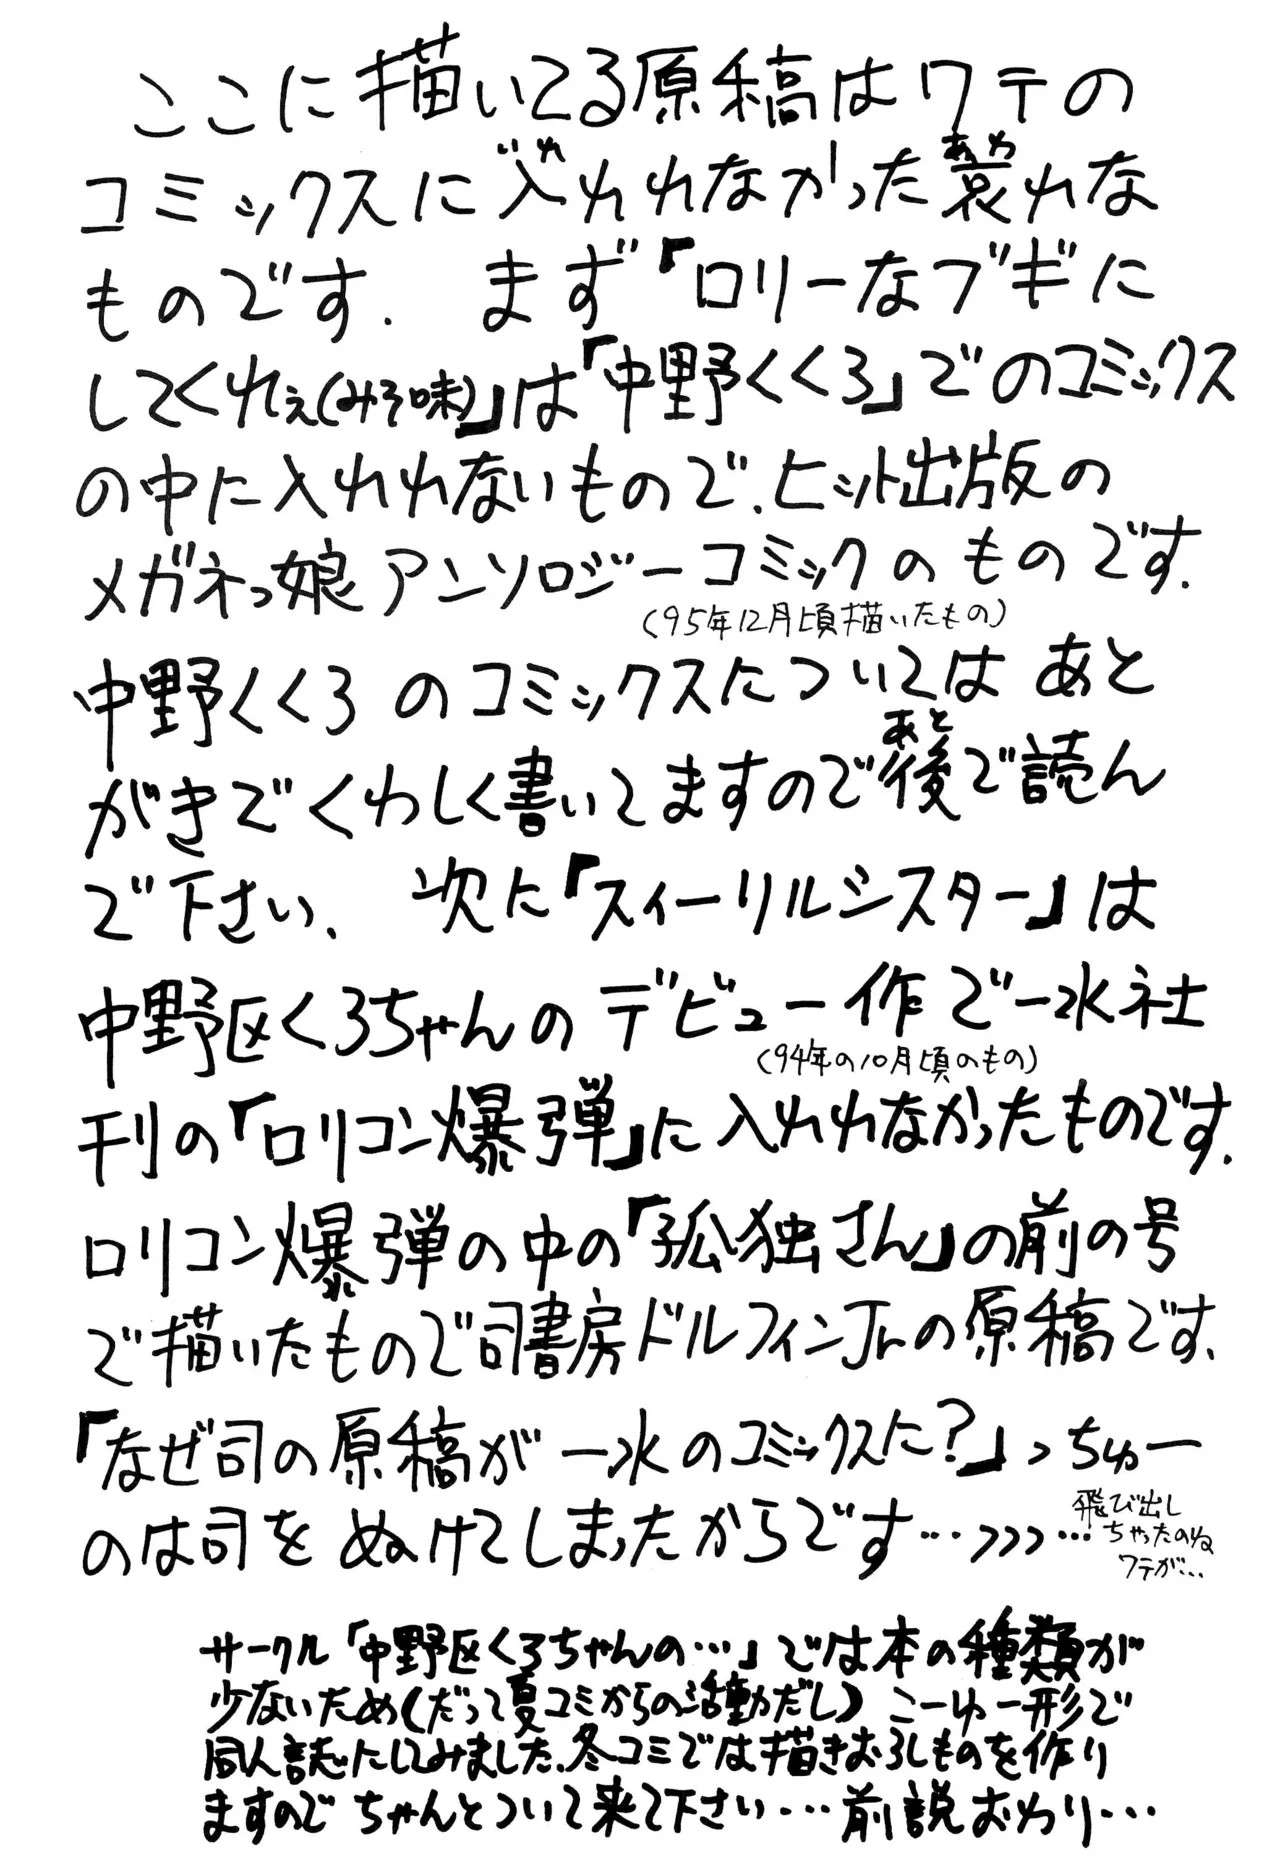 ここに描いてる原稿はワテの
コミックスに入れれなかった哀れな
ものです. まず「ロリーなブギに
してくれぇ(みそ味)」は「中野くくろ」でのコミックス
の中に入れれないもので.ヒット出版の
メガネっ娘アンソロジーコミックのものです.
(95年12月頃描いたもの)
中野くくろのコミックスについてはあと
がきでくわしく書いてますので後で読ん
で下さい. 次に「スィーリルシスター」は
中野区くろちゃんのデビュー作で一水社
(94年の10月頃のもの)
刊の「ロリコン爆弾」に入れれなかったものです.
ロリコン爆弾の中の「孤独さん」の前の号
で描いたもので司書房ドルフィンJrの原稿です、
「なぜ司の原稿が一水のコミックスに?」っちゅー
のは司をぬけてしまったからです…>>>…
飛び出し
ちゃったのね
ワテが…
サークル「中野区くろちゃんの…」では本の種類が
少ないため(だって夏コミからの活動だし)こーゆー形で
同人誌にしてみました.冬コミでは描きおろしものを作り
ますので ちゃんとついて来て下さい…前説おわり…